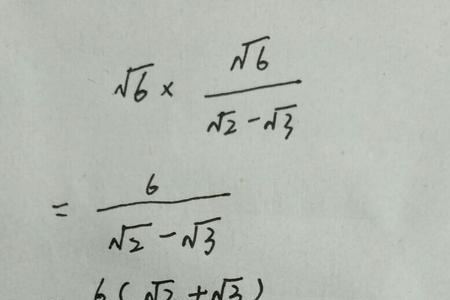 √6 × √6/(√2 - √3)
= 6/(√2 - √3)
6(√2 + √3)